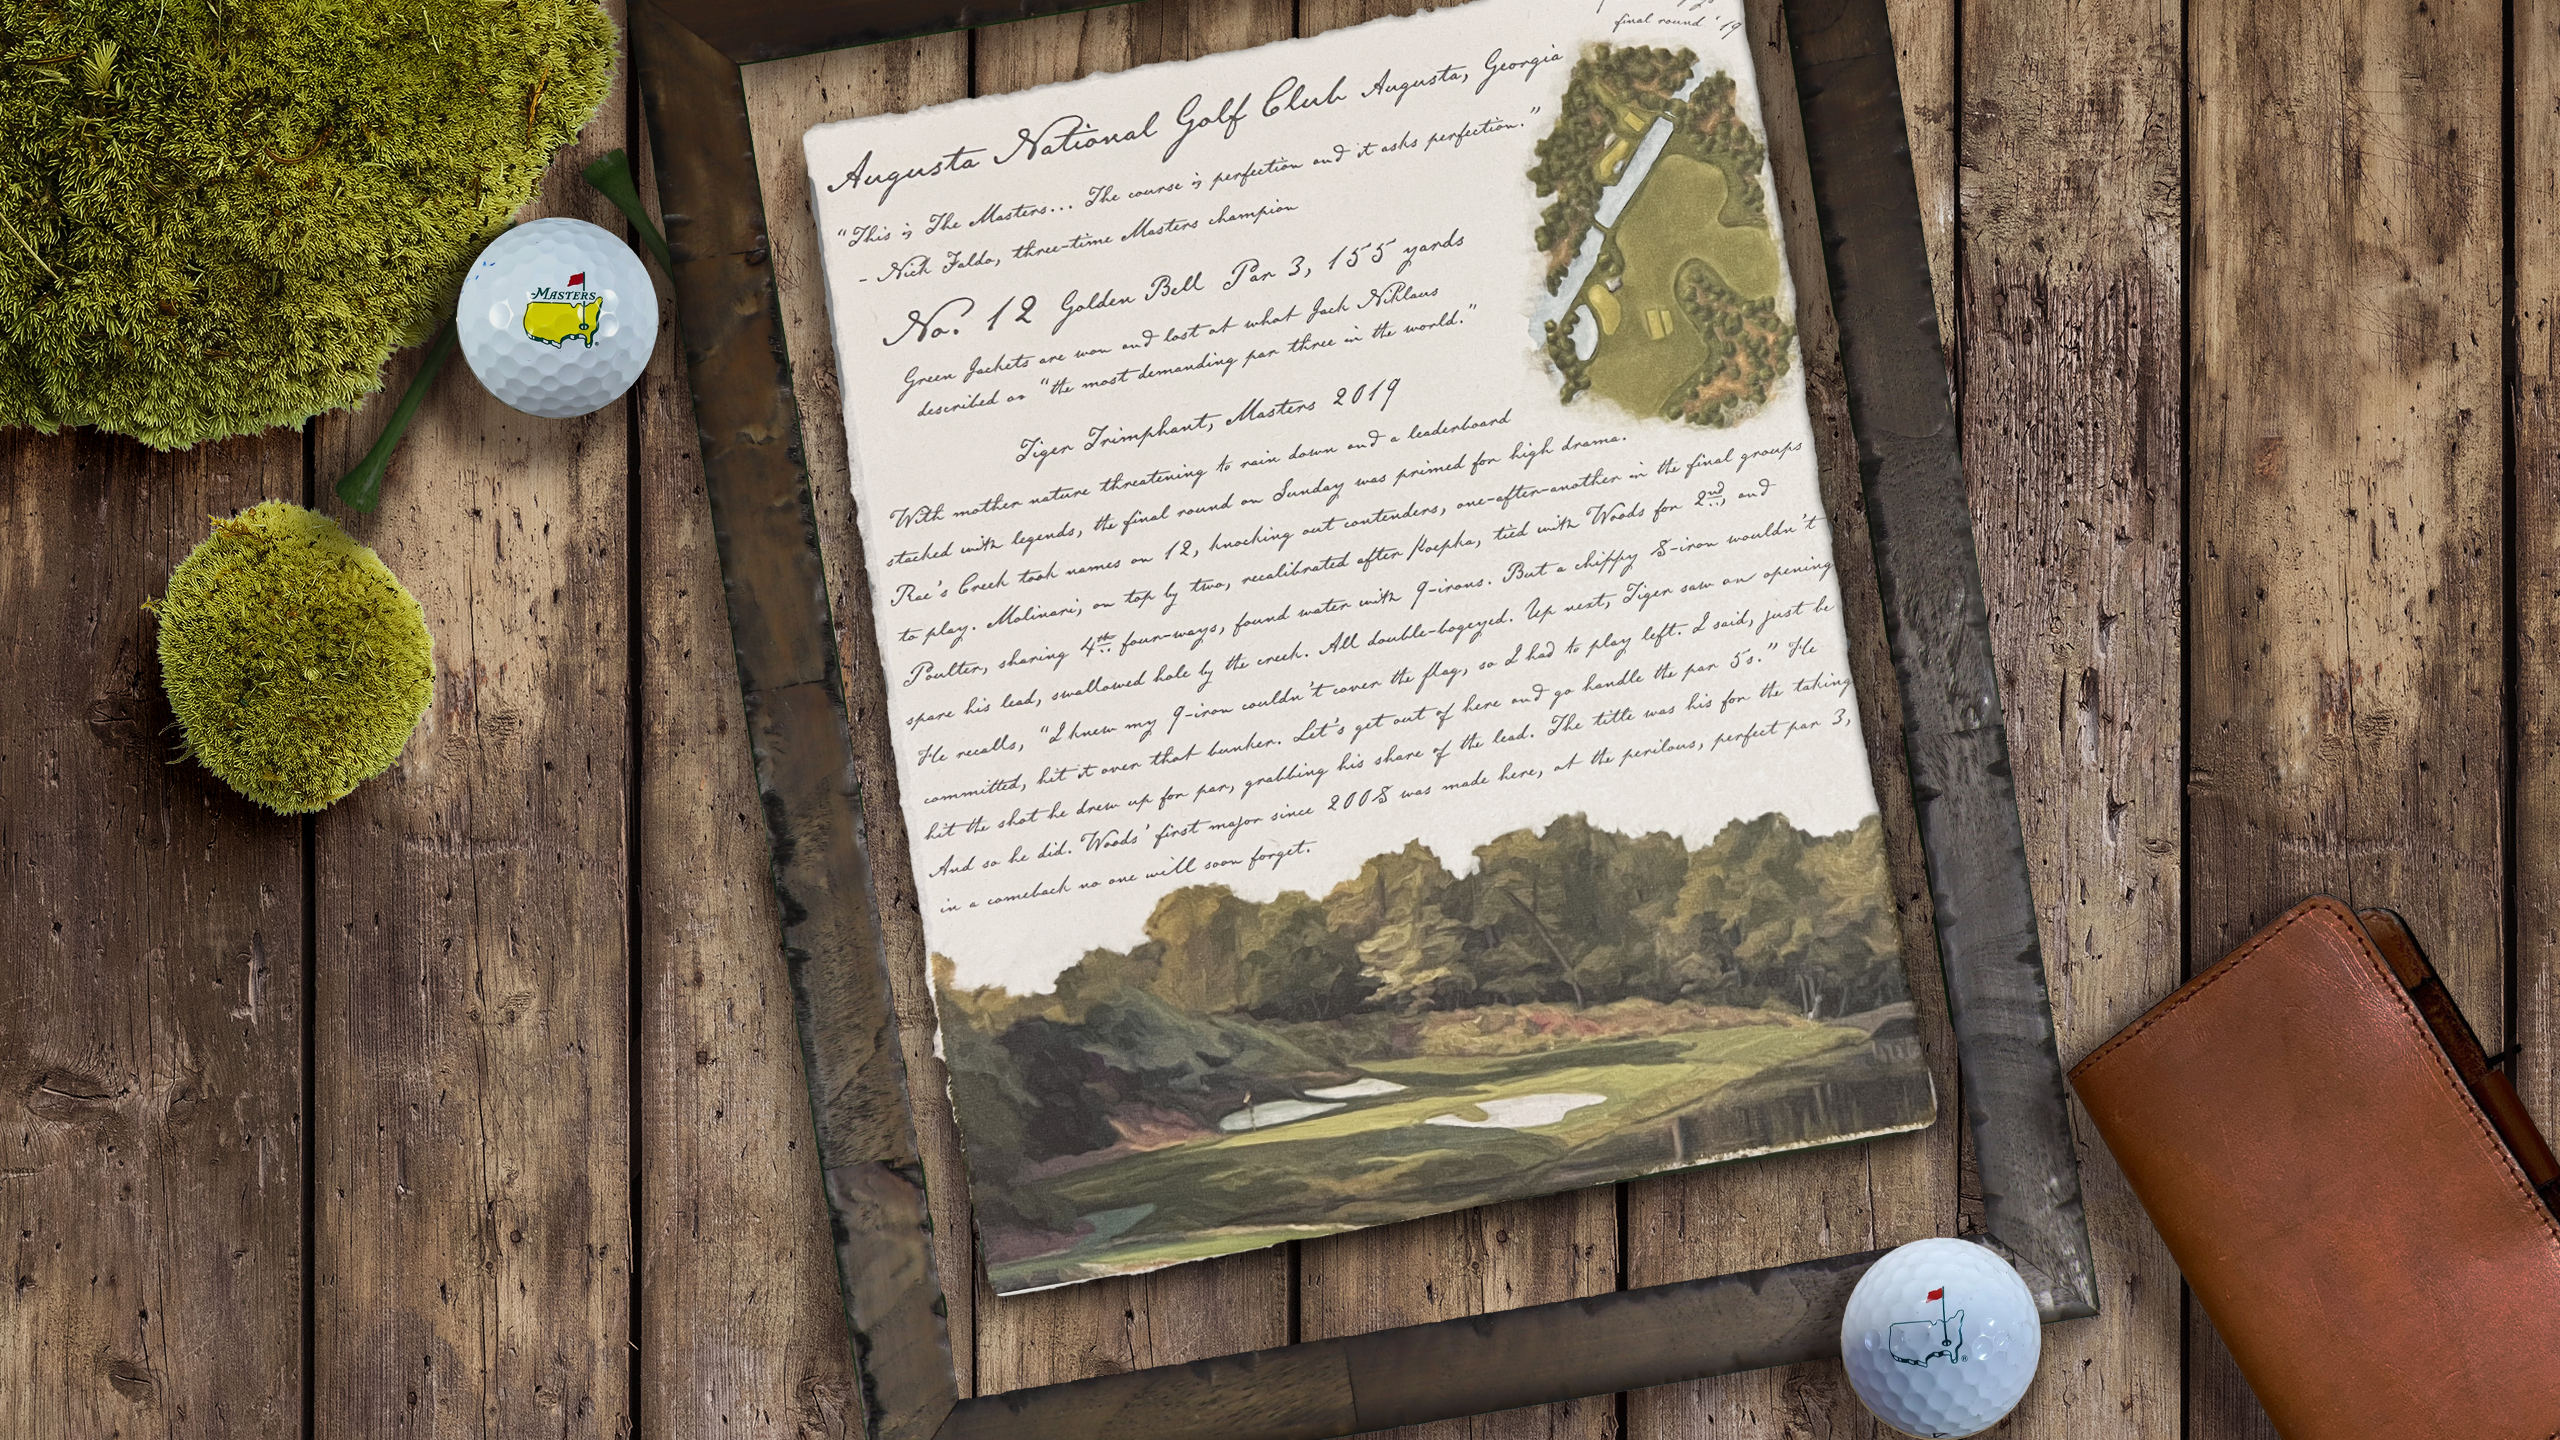 final round '19
Augusta National Golf Club Augusta, Georgia
"This is The Masters... The course is perfection and it asks perfection."
- Nick Faldo, three-time Masters champion
No. 12 Golden Bell Par 3, 155 yards
Green Jackets are won and lost at what Jack Niklaus
described as "the most demanding par three in the world."
Tiger Trimphant, Masters 2019
With mother nature threatening to rain down and a leaderboard
stacked with legends, the final round on Sunday was primed for high drama.
Rae's Creek took names on 12, knocking out contenders, one-after-another in the final groups
to play. Molinari, on top by two, recalibrated after Koepka, tied with Woods for 2nd, and
Poulter, sharing 4th four-ways, found water with 9-irons. But a chippy 8-iron wouldn't
spare his lead, swallowed hole by the creek. All double-bogeyed. Up next, Tiger saw an opening
He recalls, "I knew my 9-iron couldn't cover the flag, so I had to play left. I said, just be
committed, hit it over that bunker. Let's get out of here and go handle the par 5s." He
hit the shot he drew up for par, grabbing his share of the lead. The title was his for the taking
And so he did. Woods' first major since 2008 was made here, at the perilous, perfect par 3,
in a comeback no one will soon forget.
MASTERS